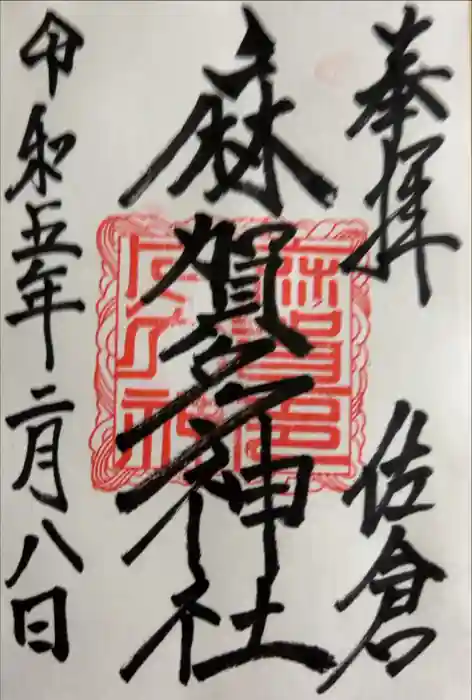 奉拝 佐倉
麻賀多神社
令和五年二月八日